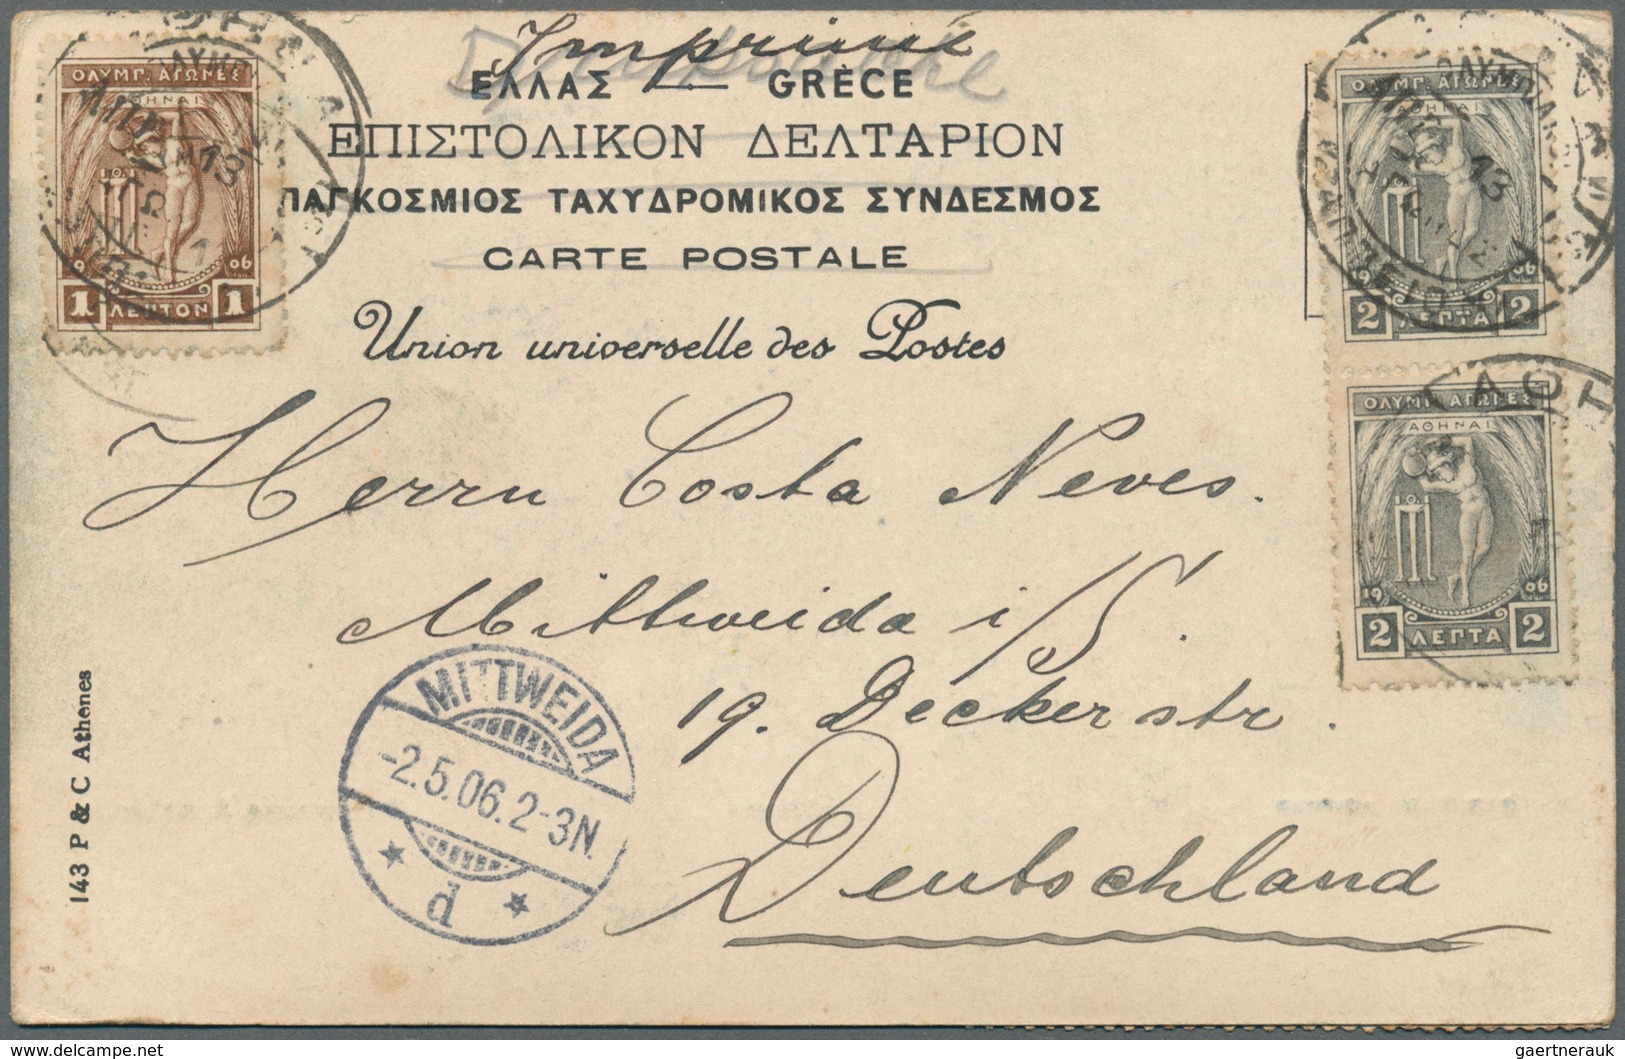 Imprimé
Drucksache
ΕΛΛΑΣ — GRÈCE
ΕΠΙΣΤΟΛΙΚΟΝ ΔΕΛΤΑΡΙΟΝ
ΠΑΓΚΟΣΜΙΟΣ ΤΑΧΥΔΡΟΜΙΚΟΣ ΣΥΝΔΕΣΜΟΣ
CARTE POSTALE
Union universelle des Postes
ΟΛΥΜΠ. ΑΓΩΝΕΣ
ΑΘΗΝΑΙ
19 06
1 ΛΕΠΤΟΝ 1
ΟΛΥΜΠ. ΑΓΩΝΕΣ
ΑΘΗΝΑΙ
19 06
2 ΛΕΠΤΑ 2
ΟΛΥΜΠ. ΑΓΩΝΕΣ
ΑΘΗΝΑΙ
19 06
2 ΛΕΠΤΑ 2
Herrn Costa Neves.
Mittweida i/S.
19. Deckerstr.
Deutschland
MITTWEIDA
-2.5.06.2-3N.
d
143 P & C Athenes
www.delcampe.net
gaertnerauk